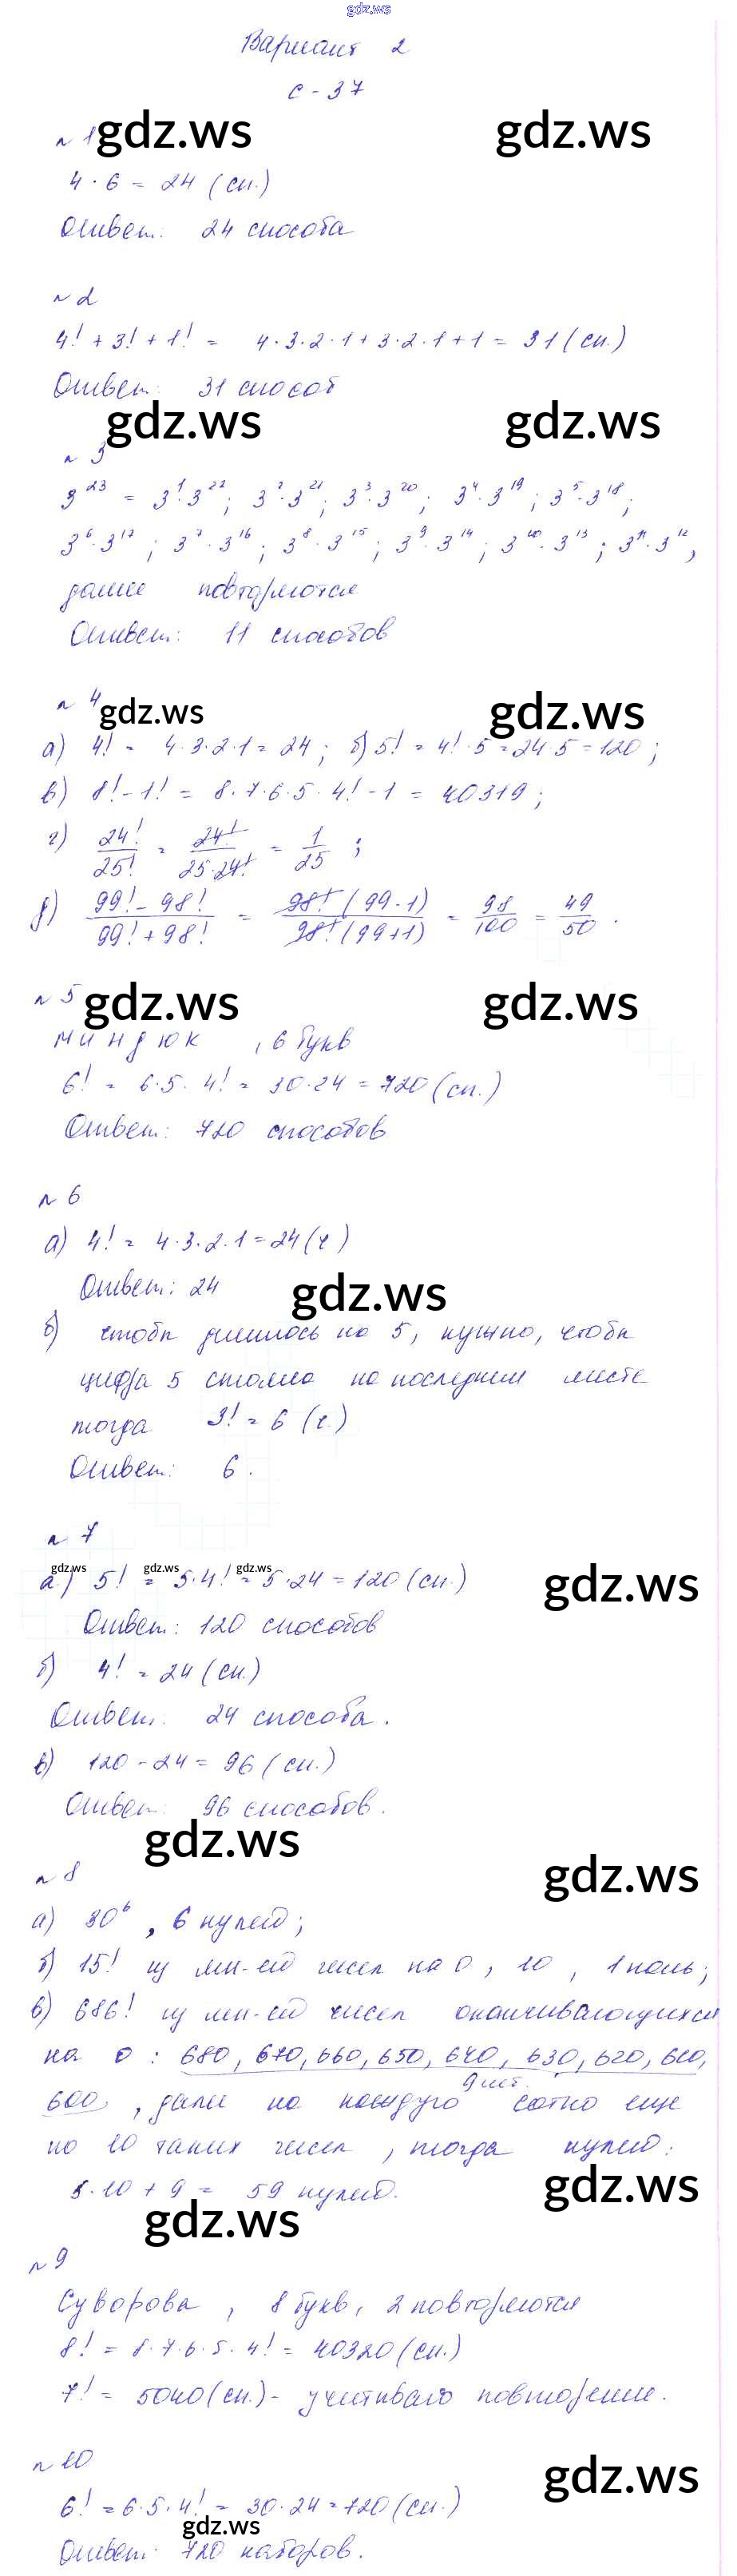 gdz.ws
Вариант 2
С-37
№ 1
gdz.ws gdz.ws
4 · 6 = 24 (сп.)
Ответ: 24 способа
№ 2
4! + 3! + 1! = 4·3·2·1+3·2·1+1 = 31 (сп.)
Ответ: 31 способ
gdz.ws gdz.ws
№ 3
3²³ = 3¹·3²²; 3²·3²¹; 3³·3²⁰; 3⁴·3¹⁹; 3⁵·3¹⁸;
3⁶·3¹⁷; 3⁷·3¹⁶; 3⁸·3¹⁵; 3⁹·3¹⁴; 3¹⁰·3¹³; 3¹¹·3¹²,
далее повторяются
Ответ: 11 способов
№ 4
gdz.ws gdz.ws
а) 4! = 4·3·2·1 = 24; б) 5! = 4!·5 = 24·5 = 120;
в) 8!-1! = 8·7·6·5·4!-1 = 40319;
г) 24!/25! = 24!/25·24! = 1/25;
д) 99!-98!/99!+98! = 98!(99-1)/98!(99+1) = 98/100 = 49/50.
№ 5
gdz.ws gdz.ws
миндюк, 6 букв
6! = 6·5·4! = 30·24 = 720 (сп.)
Ответ: 720 способов
№ 6
а) 4! = 4·3·2·1 = 24 (ч)
Ответ: 24
gdz.ws
б) чтобы делилось на 5, нужно, чтобы
цифра 5 стояла на последнем месте
тогда 3! = 6 (ч.)
Ответ: 6.
№ 7
gdz.ws gdz.ws gdz.ws gdz.ws
а) 5! = 5·4! = 5·24 = 120 (сп.)
Ответ: 120 способов
б) 4! = 24 (сп.)
Ответ: 24 способа.
в) 120-24 = 96 (сп.)
Ответ: 96 способов.
gdz.ws
№ 8
gdz.ws
а) 30⁶, 6 нулей;
б) 15! из мн-ей чисел на 0, 10, 1 ноль;
в) 686! из мн-ей чисел оканчивающихся
на 0: 680, 670, 660, 650, 640, 630, 620, 610,
9 шт.
600, далее на каждую сотню еще
по 10 таких чисел, тогда нулей:
5·10+9 = 59 нулей.
gdz.ws
gdz.ws
№ 9
Суворова, 8 букв, 2 повторяются
8! = 8·7·6·5·4! = 40320 (сп.)
7! = 5040 (сп.) - учитываю повторение.
№ 10
gdz.ws
6! = 6·5·4! = 30·24 = 720 (сп.)
gdz.ws
Ответ: 720 наборов.